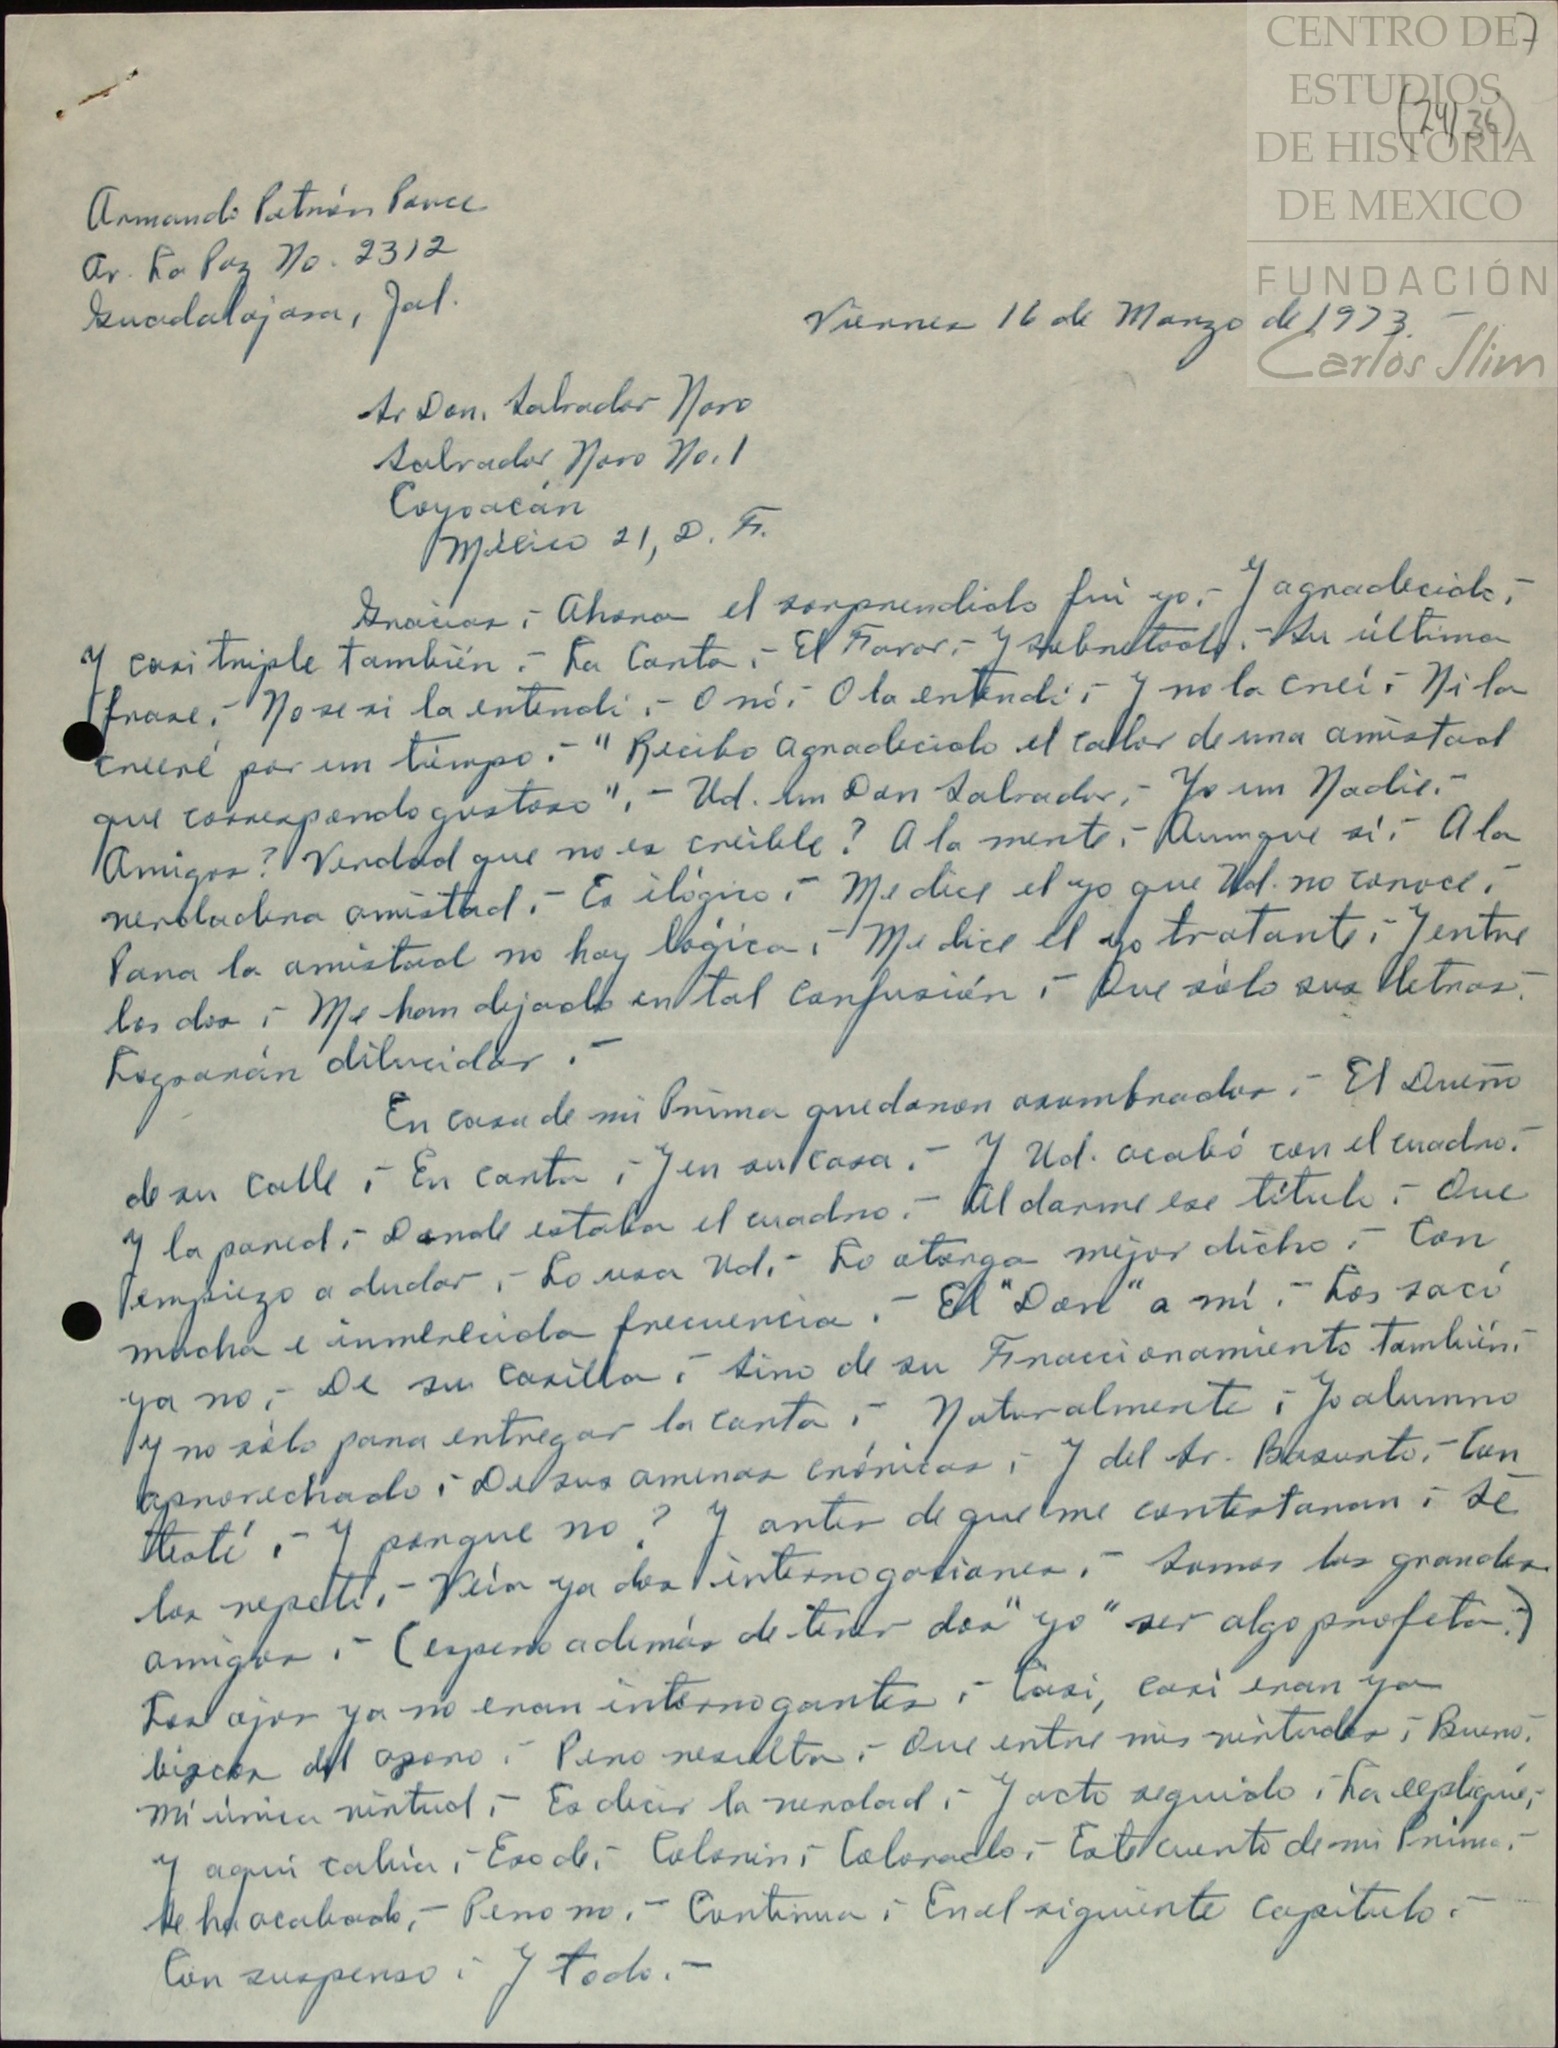 CENTRO DE
ESTUDIOS
DE HISTORIA
DE MEXICO
FUNDACIÓN
Carlos Slim
7
(74) 36)
Armando Patrón Ponce
Av. La Paz No. 2312
Guadalajara, Jal.
Viernes 16 de Marzo de 1973.-
Sr Don. Salvador Novo
Salvador Novo No. 1
Coyoacán
México 21, D. F.
Gracias.- Ahora el sorprendido fuí yo.- Y agradecido.-
Y casi triple también.- La Carta.- El Favor.- Y sobretodo.- Su última
frase.- No se si la entendí.- O nó.- O la entendí.- Y no la creí.- Ni la
creeré por un tiempo.- "Recibo agradecido el calor de una amistad
que correspondo gustoso".- Ud. un Don Salvador.- Yo un Nadie.-
Amigos? Verdad que no es creíble? A la mente.- Aunque sí.- A la
verdadera amistad.- Es ilógico.- Me dice el yo que Ud. no conoce.-
Para la amistad no hay lógica.- Me dice el yo tratante.- Y entre
los dos.- Me han dejado en tal confusión.- Que sólo sus letras.
Lograrán dilucidar.-
En casa de mi Prima quedaron asombrados.- El Dueño
de su calle.- En carta.- Y en su casa.- Y Ud. acabó con el cuadro.-
Y la pared.- Donde estaba el cuadro.- Al darme ese título.- Que
empiezo a dudar.- Lo usa Ud.- Lo otorga mejor dicho.- Con
mucha e inmerecida frecuencia.- El "Don" a mí.- Los sacó
ya no.- De su casilla.- Sino de su Fraccionamiento también.-
Y no sólo para entregar la carta.- Naturalmente.- Yo alumno
aprovechado.- De sus amenas crónicas.- Y del Sr. Basurto.- Con
testé.- Y porque no? Y antes de que me contestaran.- Se
los repetí.- Veía ya dos interrogaciones.- Somos los grandes
amigos.- (espero además de tener dos "yo" ser algo profeta.-)
Los ojos ya no eran interrogantes.- Casi, casi eran ya
bizcos del azoro.- Pero resulta.- Que entre mis virtudes.- Bueno.
Mi única virtud.- Es decir la verdad.- Y acto seguido.- La expliqué.-
Y aquí cabía.- Eso de.- Colorín.- Colorado.- Este cuento de mi Prima.-
Se ha acabado.- Pero no.- Continua.- En el siguiente capítulo.-
Con suspenso.- Y todo.-